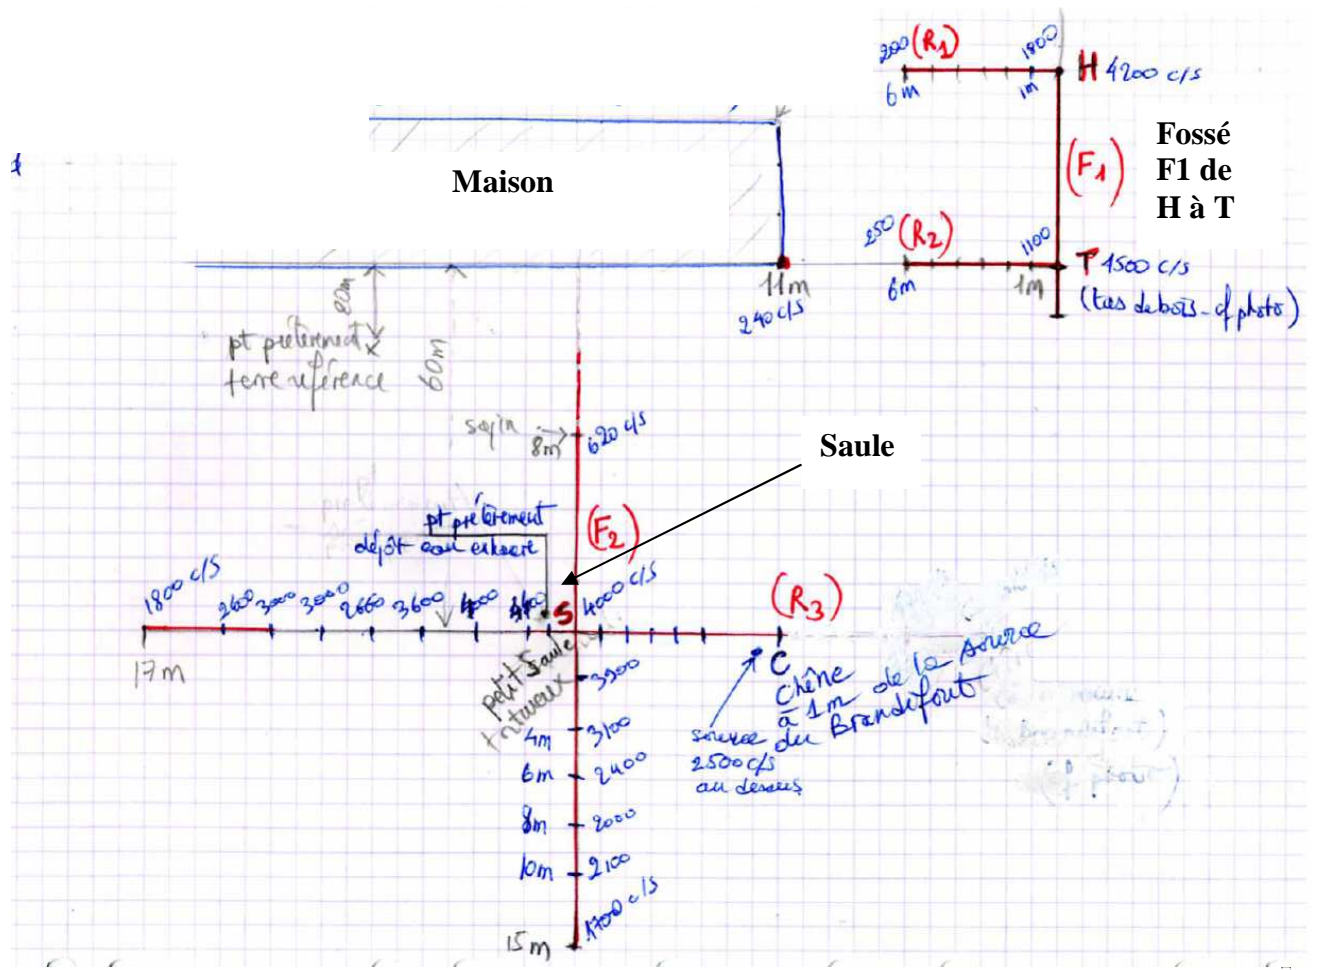 200 (R1) 1800
6m 1m
H 4200 c/s
Maison
(F1)
Fossé
F1 de
H à T
250 (R2) 1100
6m 1m
T 1500 c/s
(tas de bois - cf photo)
11m
240 c/s
20m
60m
pt prélèvement
terre référence
sapin
8m
620 c/s
Saule
pt prélèvement
dépôt eau exhaure
(F2)
(R3)
1800 c/s 2600 3000 3000 2660 3600 4000
S
4000 c/s
17m
petit Saule
tortueux
3900
C
Chêne
à 1m de la source
du Brandefout
source
2500 c/s
au dessus
4m 3100
6m 2400
8m 2000
10m 2100
15m 1700 c/s